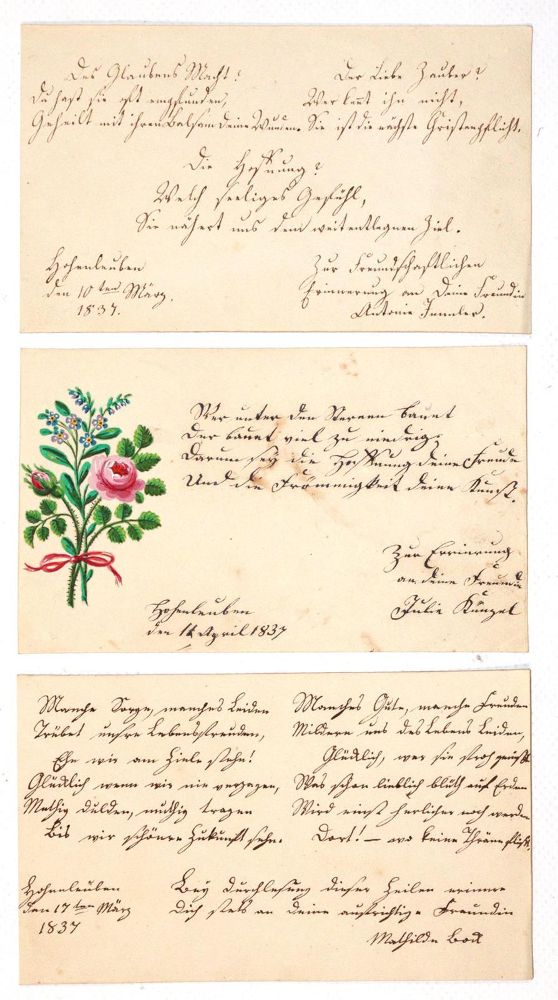 Des Glaubens Macht?
Du hast sie oft empfunden,
Geheilt mit ihren Balsam Deine Wunden.
Der Liebe Zauber?
Wer kent ihn nicht,
Sie ist die nächste Cristenpflicht.
Die Hoffnung?
Welch seeliges Gefühl,
Sie nähert uns dem weitentlegnen Ziel.
Hohenleuben
den 10ten März.
1837.
Zur Freundschaftlichen
Erinnerung an Deine Freundin
Antonie
Wer unter den Sternen bauet
Der bauet viel zu niedrig;
Darum sey die Hoffnung deine Freude
Und die Frömmigkeit deine Kunst.
Zur Errinrung
an deine Freundin
Julie Künzel
Hohenleuben
den 14 April 1837
Manche Sorge, manches Leiden
Trübet unsre Lebensfreuden,
Ehe wir am Ziele stehn!
Glücklich wenn wir nie verzagen,
Muthig dulden, muthig tragen
Bis wir schönre Zukunft sehn.
Manches Gute, manche Freuden
Mildern uns des Lebens Leiden,
Glücklich, wer sie froh genießt
Was schon lieblich blüth auf Erden
Wird einst herlicher noch werden
Dort! – wo keine Thräne fließt.
Hohenleuben
den 17ten März
1837
Bey Durchlesung dieser Zeilen erinnre
Dich stets an deine aufrichtige Freundin
Mathilde